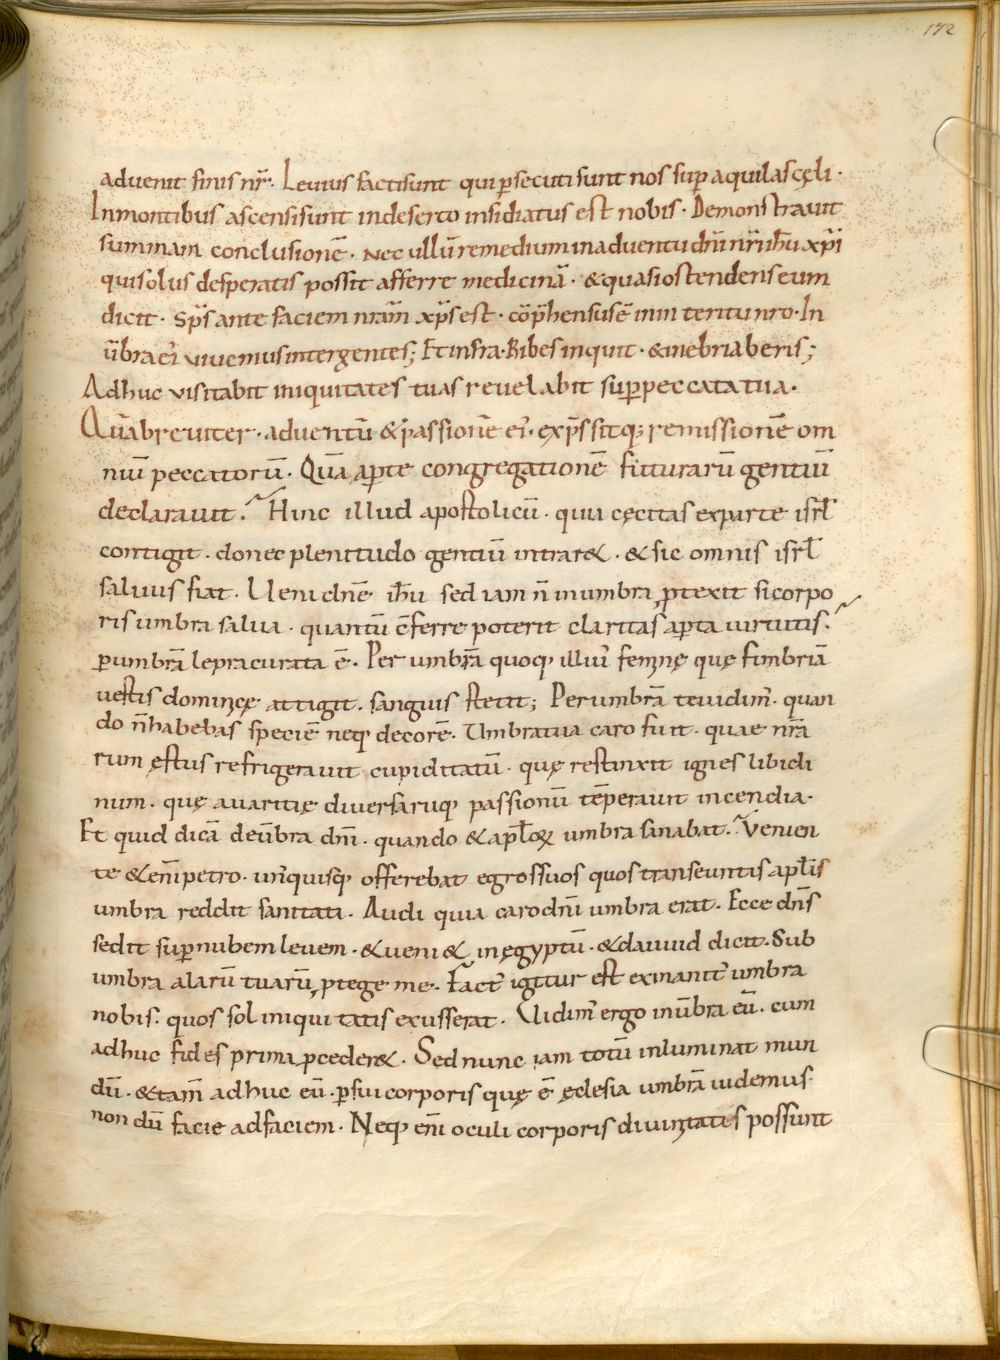 172
advenit finis nr̄. Levius facti sunt qui p̲secuti sunt nos sup̲ aquilas cęli.
In montibus ascensi sunt in deserto insidiatus est nobis. Demonstravit
summam conclusionē. nec ullū remedium in adventu dn̄i nr̄i ih̄u xp̄i
qui solus desperatis possit afferre medicinā. & quasi ostendens eum
dicit. sp̄s ante faciem nr̄am xp̄s est. cōp̄hensus ē in interitu nr̄o. In
ūbra ei᾽ vivemus inter gentes; Et infra. Bibes inquit. & inebriaberis;
Adhuc visitabit iniquitates tuas revelabit sup̲ peccata tua.
Quā breviter. adventū & passionē ei᾽. exp̄ssitq; remissionē om
niū peccatorū. Quā ap̲te congregationē futurarū gentiū
declaravit. Hinc illud apostolicū. quia cęcitas ex parte isrl̄
contigit. donec plenitudo gentiū intrar&. & sic omnis isrl̄
salvus fiat. Veni dn̄e ih̄u sed iam n̄ in umbra p̲texit si corpo
ris umbra salva. quantū c̄ferre poterit claritas ap̲ta virtutis.
p̲ umbrā lepra curata ē. Per umbrā quoq; illius feminę quę fimbriā
vestis dominicę attigit. sanguis stetit; Per umbrā te vidim᾽. quan
do n̄ habebas speciē neq; decorē. Umbra tua caro fuit. quae nr̄a
rum ęstus refrigeravit cupiditatū. quę restinxit ignes libidi
num. quę avaritię diversaruq; passionū tēperavit incendia.
Et quid dicā de ūbra dn̄i. quando & apl̄oꝝ umbra sanabat. Venien
te & eni᾽ petro. un᾽quisq; offerebat egros suos quos transeuntis apl̄is
umbra reddit sanitati. Audi quia caro dn̄i umbra erat. Ecce dn̄s
sedit sup̲ nubem levem. & veni& in ęgyptū. & david dicit. Sub
umbra alarū tuarū p̲tege me. Fact᾽ igitur est exinanit᾽ umbra
nobis. quos sol iniquitatis exusserat. Vidim᾽ ergo in ūbra eū. cum
adhuc fides prima p̲ceder&. Sed nunc iam totū inluminat mun
dū. & tam̄ adhuc eū. p̲ sui corporis quę ē ęclesia umbrā videmus.
non dū facie ad faciem. Neq; eni᾽ oculi corporis divinitates possunt